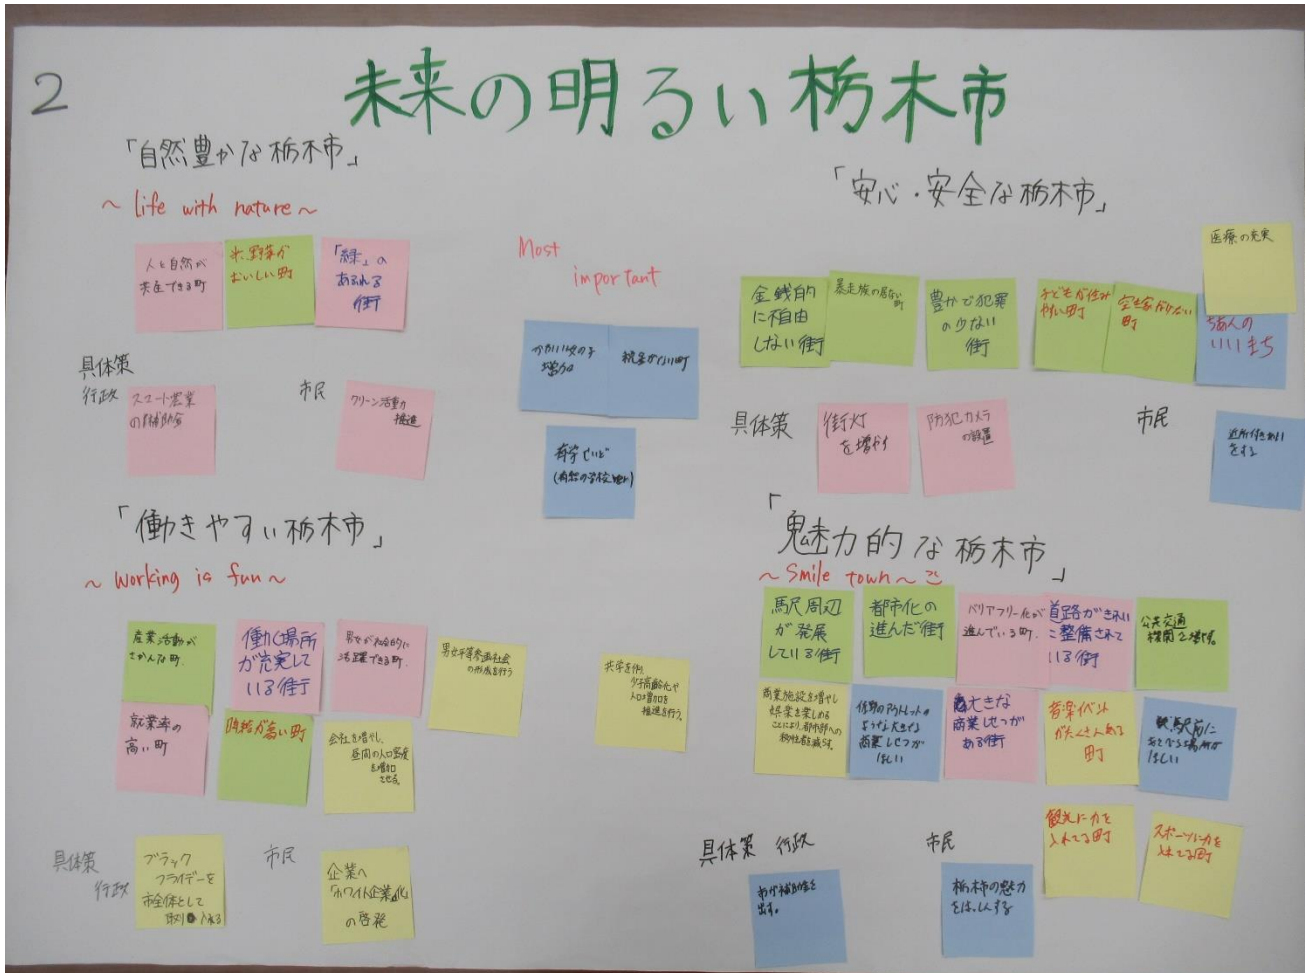 2
未来の明るい栃木市
「自然豊かな栃木市」
~ life with nature ~
人と自然が
共生できる町
米、野菜が
おいしい町
「緑」の
あふれる
街
具体策
行政
スマート農業
の補助金
市民
クリーン活動の
推進
Most
important
かわいい女の子
増加
「安心・安全な栃木市」
医療の充実
金銭的
に不自由
しない街
暴走族の居ない
町
豊かで犯罪
の少ない
街
子どもが住み
やすい町
空き家が少ない
町
ちあんの
いいまち
具体策
街灯
を増やす
防犯カメラ
の設置
市民
近所付き合い
をする
「働きやすい栃木市」
~ Working is fun ~
産業活動が
さかんな町.
働く場所
が充実して
いる街
男女が社会的に
活躍できる町.
男女平等参画社会
の形成を行う
共学を作り、
少子高齢化や
人口増加を
推進を行う。
就業率の
高い町
時給が高い町
会社を増やし、
昼間の人口密度
を増加
させる。
具体策
行政
ブラック
フライデーを
市全体として
取り入れる
市民
企業へ
「ホワイト企業」化
の啓発
「魅力的な栃木市」
~ Smile town ~
駅周辺
が発展
している街
都市化の
進んだ街
バリアフリー化が
進んでいる町.
道路がきれい
に整備されて
いる街
公共交通
機関を増やす。
商業施設を増やし
娯楽を楽しめる
ことにより、都市部への
移住者を減らす。
佐野のアウトレットの
ような大きな
商業しせつが
ほしい
大きな
商業しせつが
ある街
音楽イベント
がたくさんある
町
駅前に
あそべる場所が
ほしい
観光に力を
入れてる町
スポーツに力を
入れてる町
具体策 行政
市が補助金を
出す。
市民
栃木市の魅力
をはっしんする